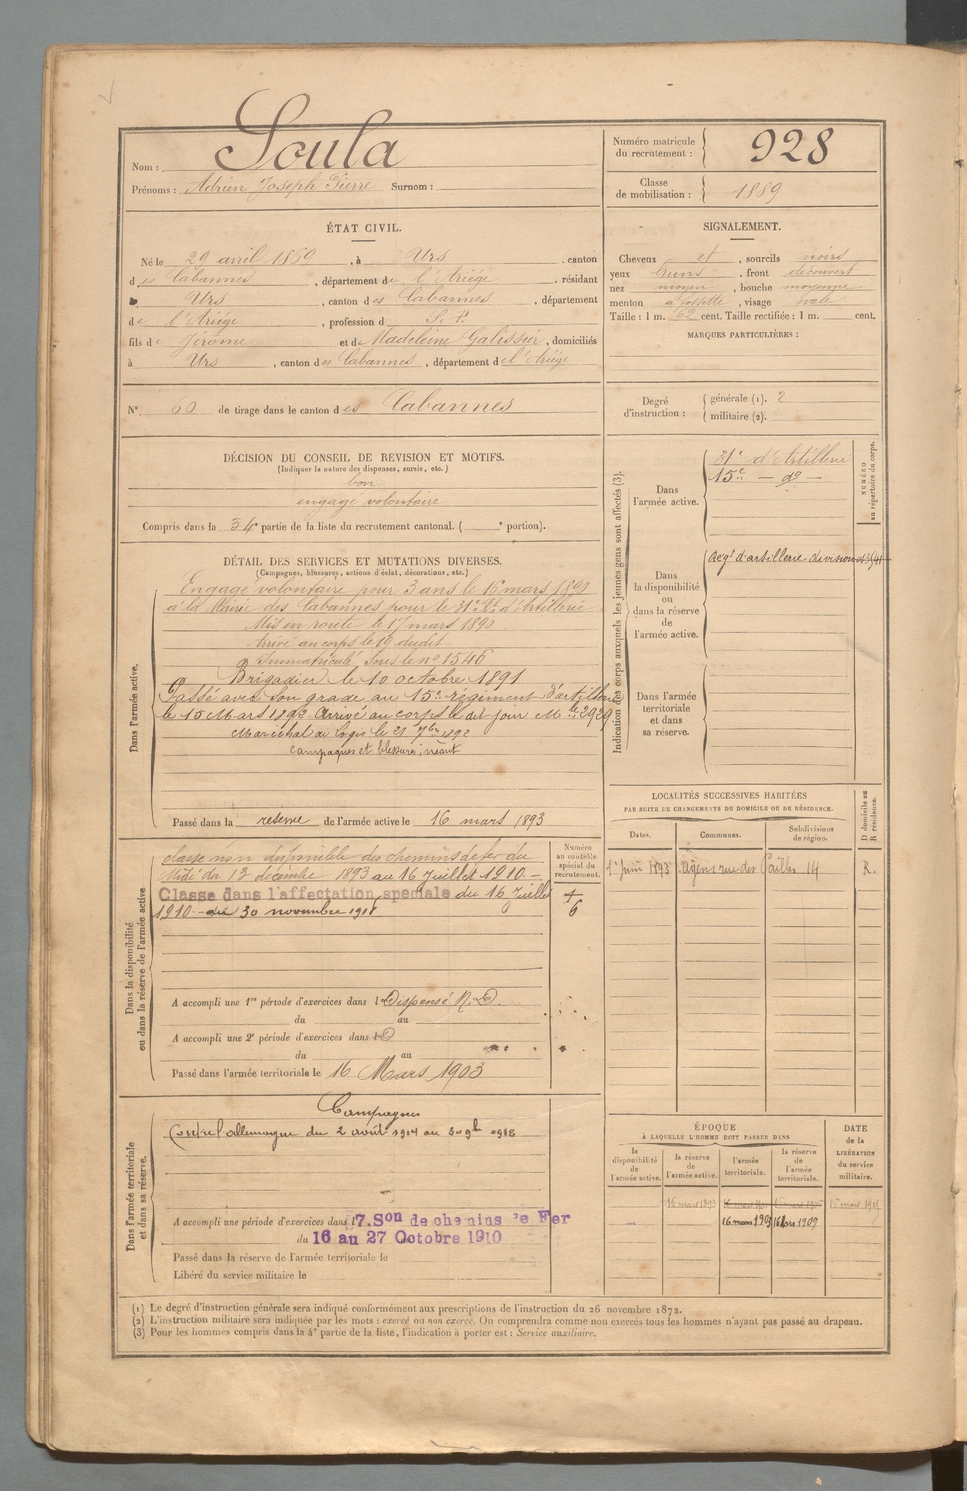 Nom : Soula
Prénoms : Adrien Joseph Pierre Surnom :
Numéro matricule du recrutement : 928
Classe de mobilisation : 1889
ÉTAT CIVIL.
Né le 29 avril 1869, à Urs, canton
des Cabannes, département de l'Ariége, résidant
Urs, canton des Cabannes, département
de l'Ariége, profession d S. P.
fils de Jérôme et de Madeleine Galissier, domiciliés
à Urs, canton des Cabannes, département de l'Ariége
N° 60 de tirage dans le canton des Cabannes
SIGNALEMENT.
Cheveux et, sourcils noirs
yeux bruns, front découvert
nez moyen, bouche moyenne
menton à fossette, visage ovale
Taille : 1 m. 62 cent. Taille rectifiée : 1 m. cent.
MARQUES PARTICULIÈRES :
Degré d'instruction : générale (1). 2
militaire (2).
DÉCISION DU CONSEIL DE REVISION ET MOTIFS.
(Indiquer la nature des dispenses, sursis, etc.)
bon
engagé volontaire
Compris dans la 3 4e partie de la liste du recrutement cantonal. ( e portion).
DÉTAIL DES SERVICES ET MUTATIONS DIVERSES.
(Campagnes, blessures, actions d'éclat, décorations, etc.)
Dans l'armée active.
Engagé volontaire pour 3 ans le 16 mars 1890
à la Mairie des Cabannes pour le 31e Rt d'Artillerie
Mis en route le 17 mars 1890
Arrivé au corps le 19 dudit
Immatriculé sous le no 1546
Brigadier le 10 octobre 1891
Passé avec son grade au 15e régiment d'artillerie
le 15 Mars 1892 Arrivé au corps le dit jour Mle 2929
Maréchal des logis le 21 7bre 1892
Campagnes et blessures ; néant
Passé dans la réserve de l'armée active le 16 mars 1893
Indication des corps auxquels les jeunes gens sont affectés (3).
Dans l'armée active.
31e d'Artillerie
15e — do —
NUMÉRO au répertoire du corps.
Dans la disponibilité ou dans la réserve de l'armée active.
Regt d'artillerie division
Dans l'armée territoriale et dans sa réserve.
LOCALITÉS SUCCESSIVES HABITÉES
PAR SUITE DE CHANGEMENTS DE DOMICILE OU DE RÉSIDENCE.
Dates. Communes. Subdivisions de région. D domicile ou R résidence.
1er Juin 1893 Agen rue des Pailles 14 R.
Dans la disponibilité ou dans la réserve de l'armée active
Numéro au contrôle spécial du recrutement.
classe non disponible des chemins de fer du
Midi du 13 décembre 1893 au 16 Juillet 1910 –
Classe dans l'affectation speciale du 16 Juillet
1910 au 30 novembre 1918
A accompli une 1re période d'exercices dans l Dispensé N. D.
du au
A accompli une 2e période d'exercices dans l D
du au
Passé dans l'armée territoriale le 16 Mars 1903
Dans l'armée territoriale et dans sa réserve.
Campagnes
Contre l'allemagne du 2 août 1914 au 30 9b 1918
A accompli une période d'exercices dans l 7. Son de chemins de Fer
du 16 au 27 Octobre 1910
Passé dans la réserve de l'armée territoriale le
Libéré du service militaire le
ÉPOQUE
À LAQUELLE L'HOMME DOIT PASSER DANS
la disponibilité de l'armée active. la réserve de l'armée active. l'armée territoriale. la réserve de l'armée territoriale.
DATE de la LIBÉRATION du service militaire.
16 mars 1893
16 mars 1903 16 Mars 1909
(1) Le degré d'instruction générale sera indiqué conformément aux prescriptions de l'instruction du 26 novembre 1872.
(2) L'instruction militaire sera indiquée par les mots : exercé ou non exercé. On comprendra comme non exercés tous les hommes n'ayant pas passé au drapeau.
(3) Pour les hommes compris dans la 4e partie de la liste, l'indication à porter est : Service auxiliaire.